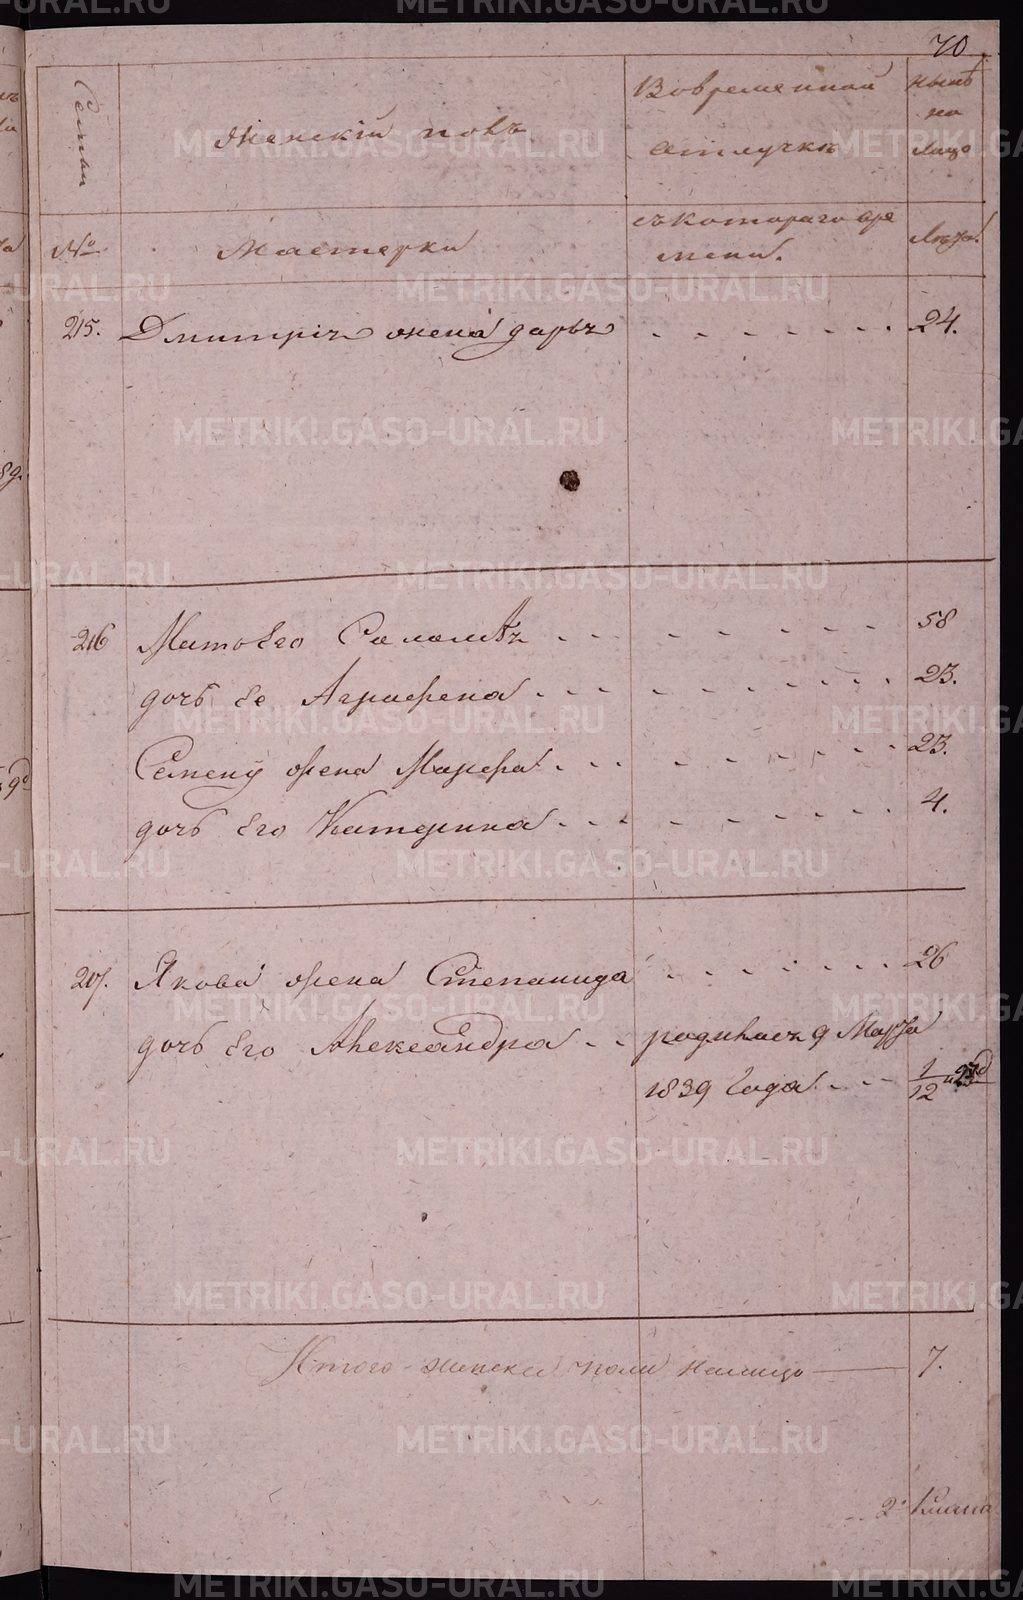 70
Семьи
Женскій полъ
Во временной
отлучкѣ
нынѣ
на
лицо
№
Мастерки
съ котораго вре
мени.
Лѣта.
215. Дмитрія жена дарья 24.
216 58
дочь Ее Аграфена 23.
жена Марфа 23.
дочь Его Катерина 4.
217. Якова жена Степанида 26
дочь Его Александра родилась 9 Марта
1839 Года 1/12
Итого женска пола налицо 7.
2.
METRIKI.GASO-URAL.RU